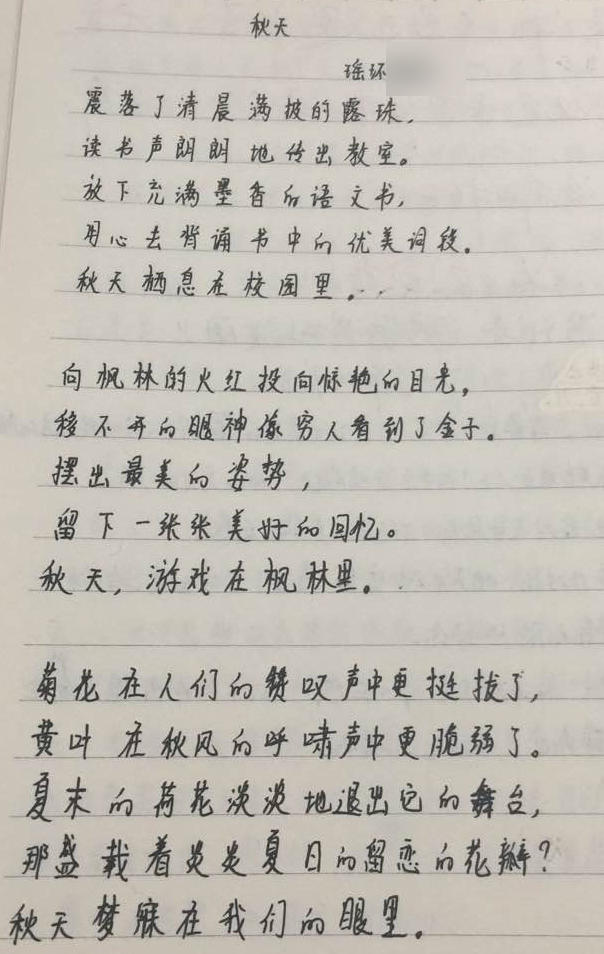 秋天
瑶环
震落了清晨满披的露珠，
读书声朗朗地传出教室。
放下充满墨香的语文书，
用心去背诵书中的优美词段。
秋天栖息在校园里...
向枫林的火红投向惊艳的目光，
移不开的眼神像穷人看到了金子。
摆出最美的姿势，
留下一张张美好的回忆。
秋天，游戏在枫林里。
菊花在人们的赞叹声中更挺拔了，
黄叶在秋风的呼啸声中更脆弱了。
夏末的荷花淡淡地退出它的舞台，
那盛载着炎炎夏日的留恋的花瓣？
秋天梦寐在我们的眼里。